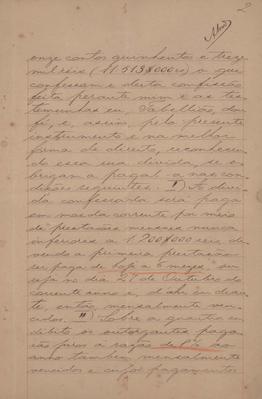 2
onze contos quinhentos e treze
mil reis (11.513$000) o que
confessam e desta confissão
feita perante mim e as tes-
temunhas eu, Tabellião dou
fé, e, assim pelo presente
instrumento e na melhor
forma de direito, reconhecen-
do essa sua divida, se o-
brigam a pagal-a nas con-
dições seguintes. I) A divi-
da confessada será paga
em moeda corrente por meio
de prestações mensaes nunca
inferiores a 1.200$000 reis, de-
vendo a primeira prestação
ser paga de hoje a 6 mezes, ou
seja no dia 21 de Outubro do
corrente anno e, d'ahi em dian-
te, então, mensalmente ven-
cidos. II) Sobre a quantia em
debito os outorgantes paga-
rão juros á razão de
anno tambem mensalmente
vencidos e cujos pagamentos